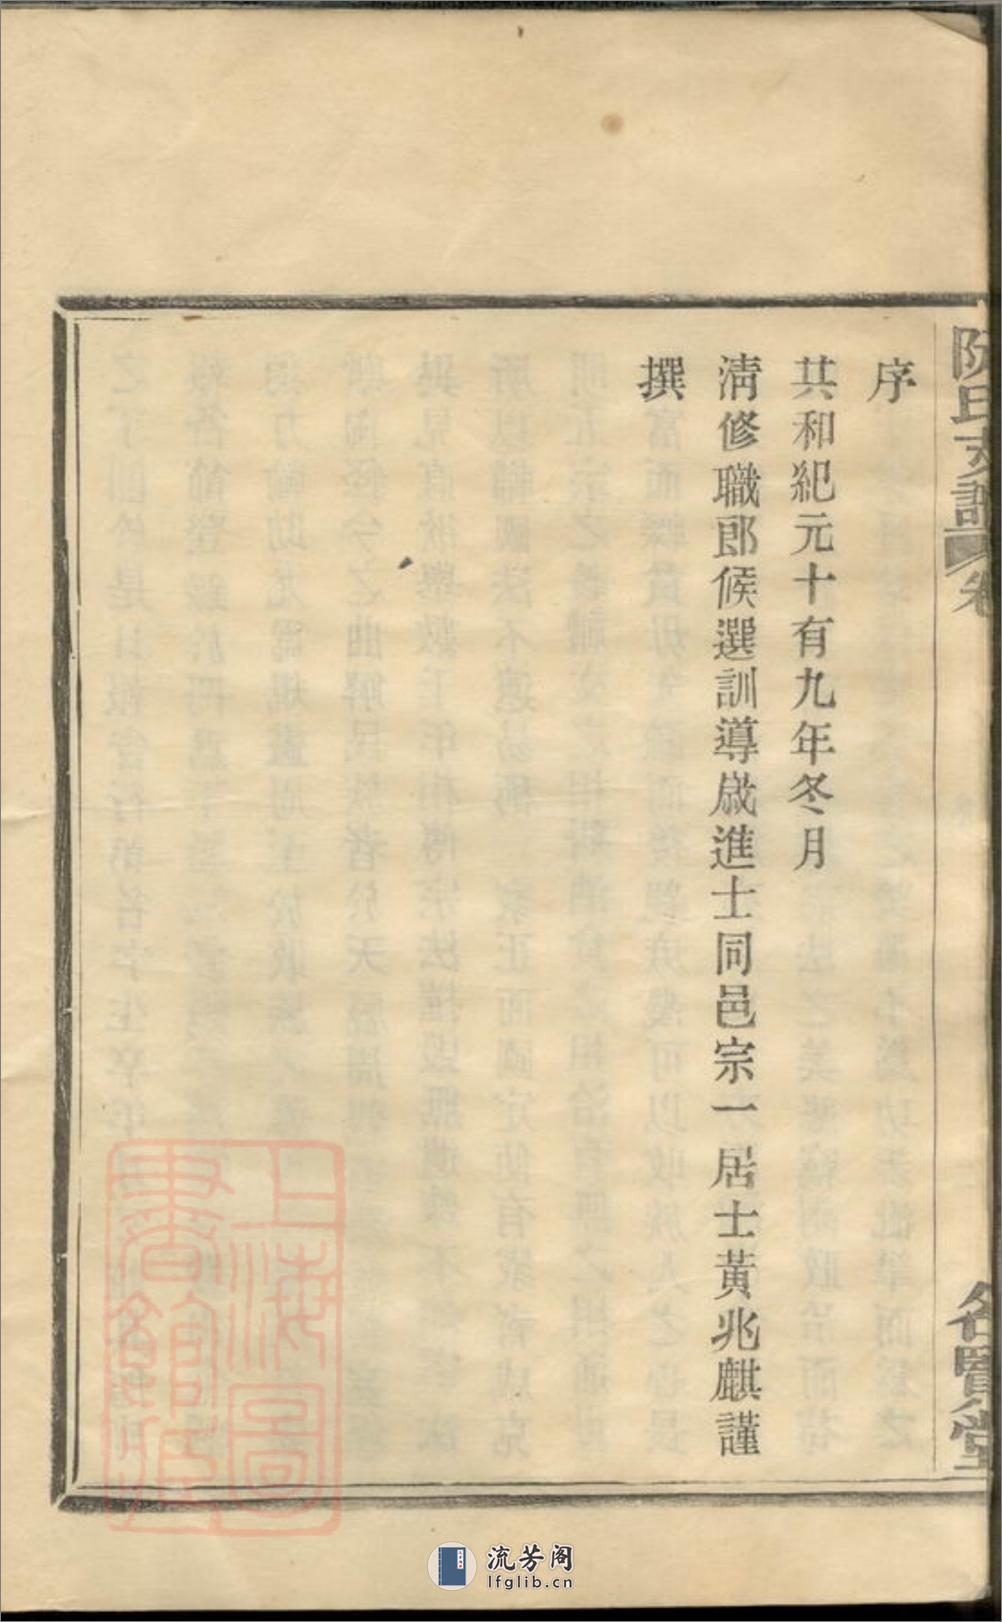 序
共和紀元十有九年冬月
淸修職郎候選訓導歲進士同邑宗一居士黃兆麒謹
撰
阮氏支譜
卷
名賢堂
上海圖
書館藏
流芳阁
lfglib.cn